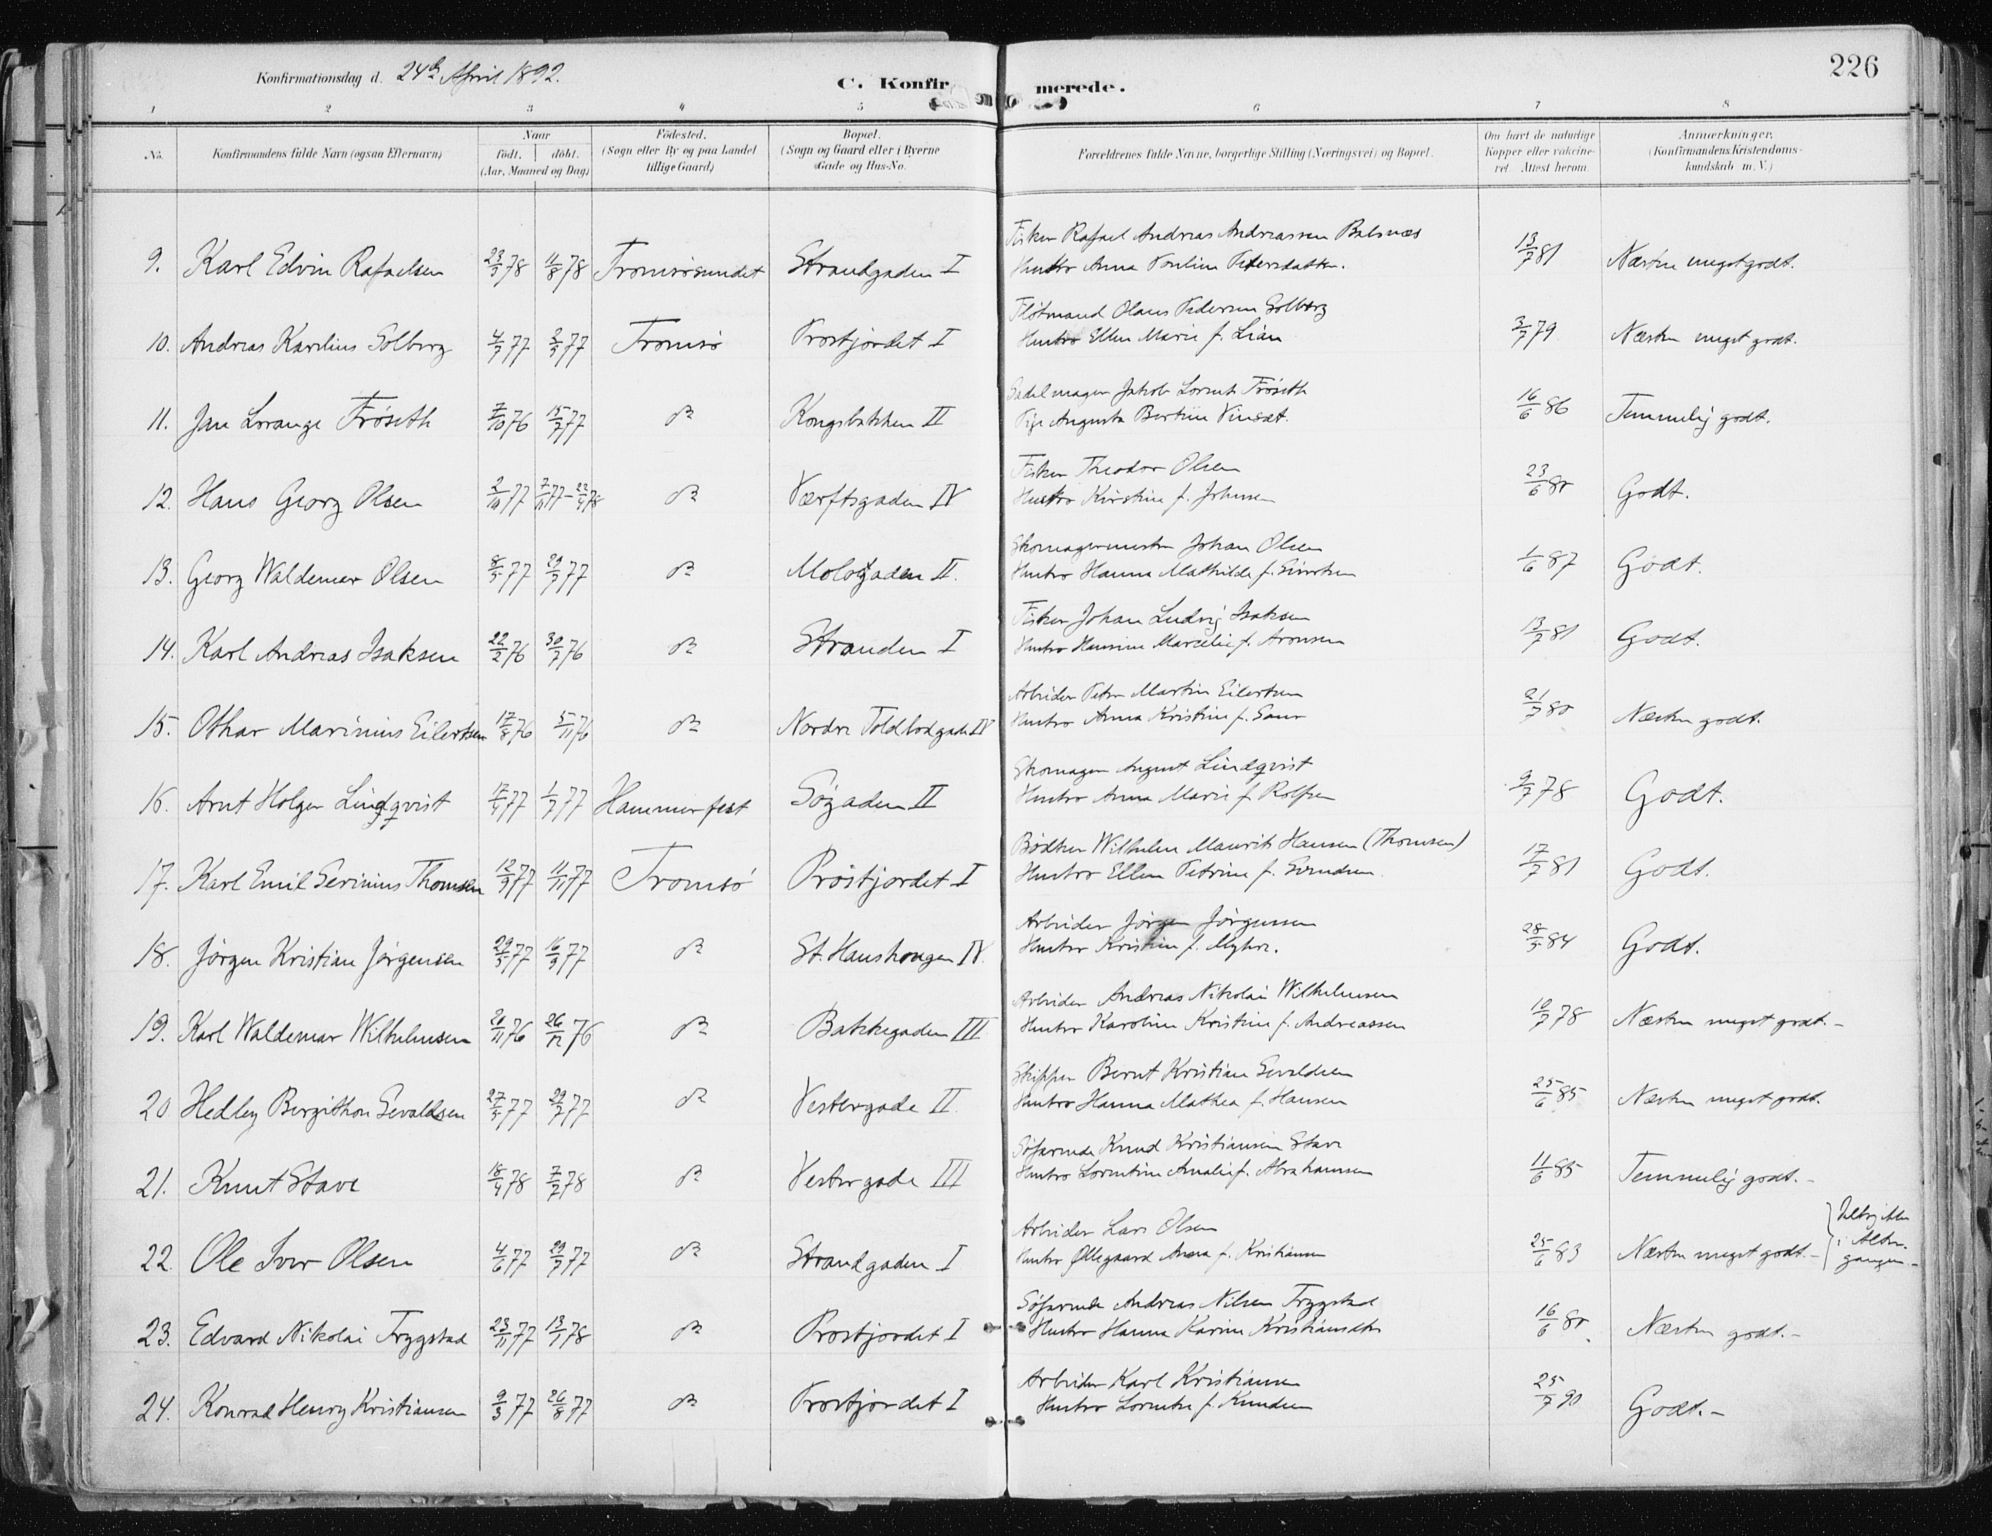 226
Konfirmationsdag d. 24de April 1892.
C. Konfirmerede.
1 2 3 4 5 6 7 8
No. Konfirmandens fulde Navn (ogsaa Efternavn) Naar født, døbt. (Aar, Maaned og Dag) Födested. (Sogn eller By og paa Landet tillige Gaard) Bopæl. (Sogn og Gaard eller i Byerne Gade og Hus-No. Forældrenes fulde Navne, borgerlige Stilling (Næringsvei) og Bopæl. Om havt de naturlige Kopper eller vaccineret. Attest herom. Anmærkninger. (Konfirmandens Kristendomskundskab m. V.)
Fisker Rafael Andreas Andreassen Balsnæs
9. Karl Edvin Rafaelsen 23/5 78 11/8 78 Tromsøsundet Strandgaden I Hustro Anna Pouline Pedersdatter. 13/7 81 Næsten meget godt.
Fløtmand Olaus Pedersen Solberg
10. Andreas Karelius Solberg 4/7 77 2/9 77 Tromsø Prostjordet I Hustro Ellen Marie f. Lian 3/7 79 Næsten meget godt.
Sadelmager Jakob Lorents Frøseth
11. Jan Lorange Frøseth 7/10 76 15/7 77 do Kongsbakken II Pige Augusta Bertine 16/6 86 Temmelig godt.
Fisker Theodor Olsen
12. Hans Georg Olsen 2/10 77 7/11 77 - 22/4 78 do Værftsgaden IV Hustro Kirstine f. Johnsen 23/6 80 Godt.
Skomagermester Johan Olsen
13. Georg Waldemar Olsen 8/5 77 29/7 77 do Mologaden II. Hustro Hanna Mathilde f. Sivertsen 1/6 87 Godt.
Fisker Johan Ludvig Isaksen
14. Karl Andreas Isaksen 22/2 76 30/7 76 do Stranden I Hustro Hansine Marcelie f. Aronsen 13/7 81 Godt.
Arbeider Peter Martin Eilertsen
15. Othar Marinius Eilertsen 17/8 76 5/11 76 do Nordre Toldbodgade IV Hustro Anna Kristine f. 21/7 80 Næsten godt.
Skomager August Lindqvist
16. Arnt Holger Lindqvist 17/4 77 1/7 77 Hammerfest Søgaden II Hustro Anna Marie f. Rolfsen 9/7 78 Godt.
Bødker Wilhelm Maurits Hansen (Thomsen)
17. Karl Emil Serinius Thomsen 12/9 77 11/11 77 Tromsø Prostjordet I Hustro Ellen Petrine f. Svendsen 17/7 81 Godt.
Arbeider Jørgen Jørgensen
18. Jørgen Kristian Jørgensen 29/5 77 16/9 77 do St. Hanshaugen IV. Hustro Kristine f. Myhre. 28/5 84 Godt.
Arbeider Andreas Nikolai Wilhelmsen
19. Karl Waldemar Wilhelmsen 20/11 76 26/12 76 do Bakkegaden III Hustro Karoline Kristine f. Andreassen 10/7 78 Næsten meget godt.-
Skipper Bernt Kristian Sevaldsen
20. Hedley Bergithon Sevaldsen 27/4 77 29/7 77 do Vestergade II. Hustro Hanna Mathea f. Hansen 25/6 85 Næsten meget godt.
Søfarende Knud Kristiansen Stave
21. Knut Stave 18/4 78 7/7 78 do Vestergade III Hustro Lorentine Amalie f. Abrahamsen 11/6 85 Temmelig godt.-
Arbeider Lars Olsen
22. Ole Iver Olsen 4/6 77 29/7 77 do Strandgaden I Hustro Øllegaard Anna f. Kristiansen 25/6 83 Næsten meget godt.- Deltog ikke i Altergangen.-
Søfarende Andreas Nilsen Trygstad
23. Edvard Nikolai Trygstad 23/11 77 13/1 78 do Prostjordet I Hustro Hanna Karine Kristiansdtr 16/6 80 Næsten godt.-
Arbeider Karl Kristiansen
24. Konrad Henry Kristiansen 9/3 77 26/8 77 do Prostjordet I Hustro Lorentze f. Knudsen 25/7 90 Godt.-